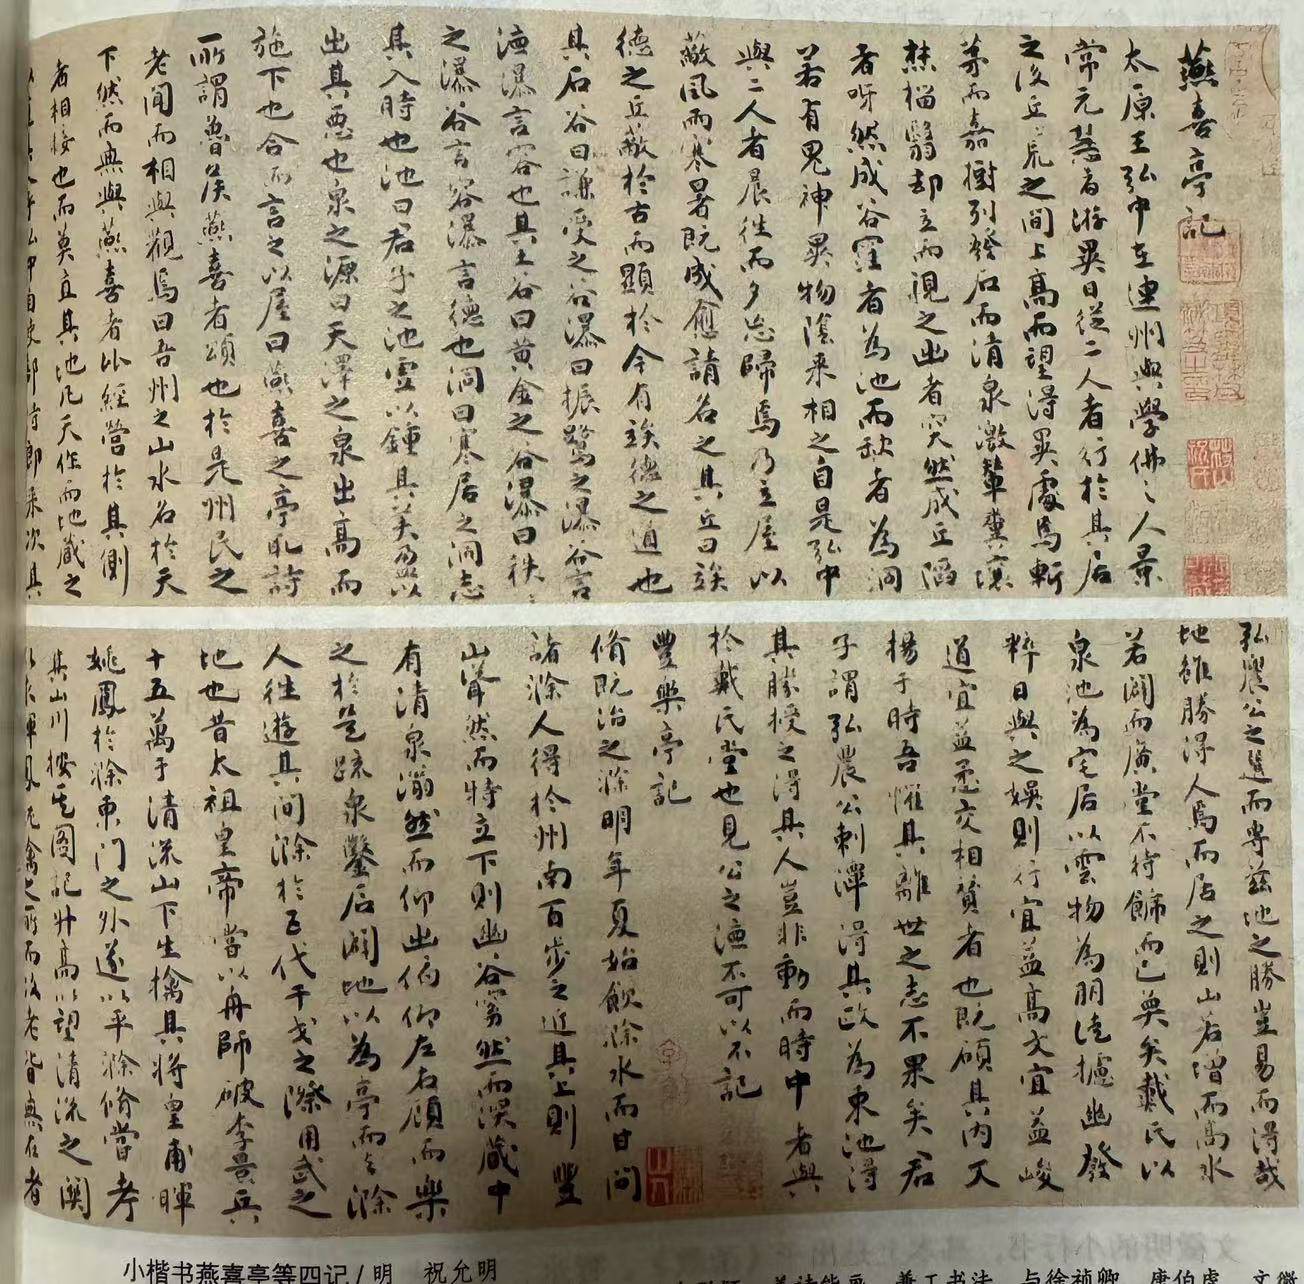 燕喜亭記
太原王弘中在連州與學佛之人景
常元慧者游異日從二人者行於其居
之後丘荒之間上高而望得異處焉斬
茅而嘉樹列發石而清泉激輦糞壤
椔翳却立而視之出者突然成丘陷
者呀然成谷窪者為池而缺者為洞
若有鬼神異物陰来相之自是弘中
與二人者晨往而夕忘歸焉乃立屋以
蔽風雨寒暑既成愈請名之其丘曰竢
德之丘蔽於古而顯於今有竢德之道也
其石谷曰謙受之谷瀑曰振鷺之瀑谷言
德瀑言容也其土谷曰黄金之谷瀑曰秩〻
之瀑谷言容瀑言德也洞曰寒居之洞志
其入時也池曰君子之池虚以鍾其美盈以
出其惡也泉之源曰天澤之泉出高而
施下也合而言之以屋曰燕喜之亭取詩
所謂魯侯燕喜者頌也於是州民之
老聞而相與觀焉曰吾州之山水名於天
下然而無與燕喜者比經營於其側
者相接也而莫直其地凡天作而地藏之
弘農公之選而專茲地之勝豈易而得哉
地雖勝得人焉而居之則山若增而高水
若闢而廣堂不待飾而已奐矣戴氏以
泉池為宅居以雲物為朋徒攄幽發
粹日與之娛則行宜益高文宜益峻
道宜益懋交相贊者也既碩其内又
揚于時吾懼其離世之志不果矣君
子謂弘農公刺潭得其政為東池得
其勝授之得其人豈非動而時中者與
於戴氏堂也見公之德不可以不記
豐樂亭記
脩既治之滁明年夏始飲滁水而甘問
諸滁人得於州南百步之近其上則豐
山聳然而特立下則幽谷窈然而深藏中
有清泉滃然而仰出俯仰左右顧而樂
之於是疏泉鑿石闢地以為亭而與滁
人往遊其間滁於五代干戈之際用武之
地也昔太祖皇帝嘗以舟師破李景兵
十五萬于清流山下生擒其將皇甫暉
姚鳳於滁東門之外遂以平滁脩嘗考
其山川按其圖記升高以望清流之關
小楷书燕喜亭等四记/明 祝允明